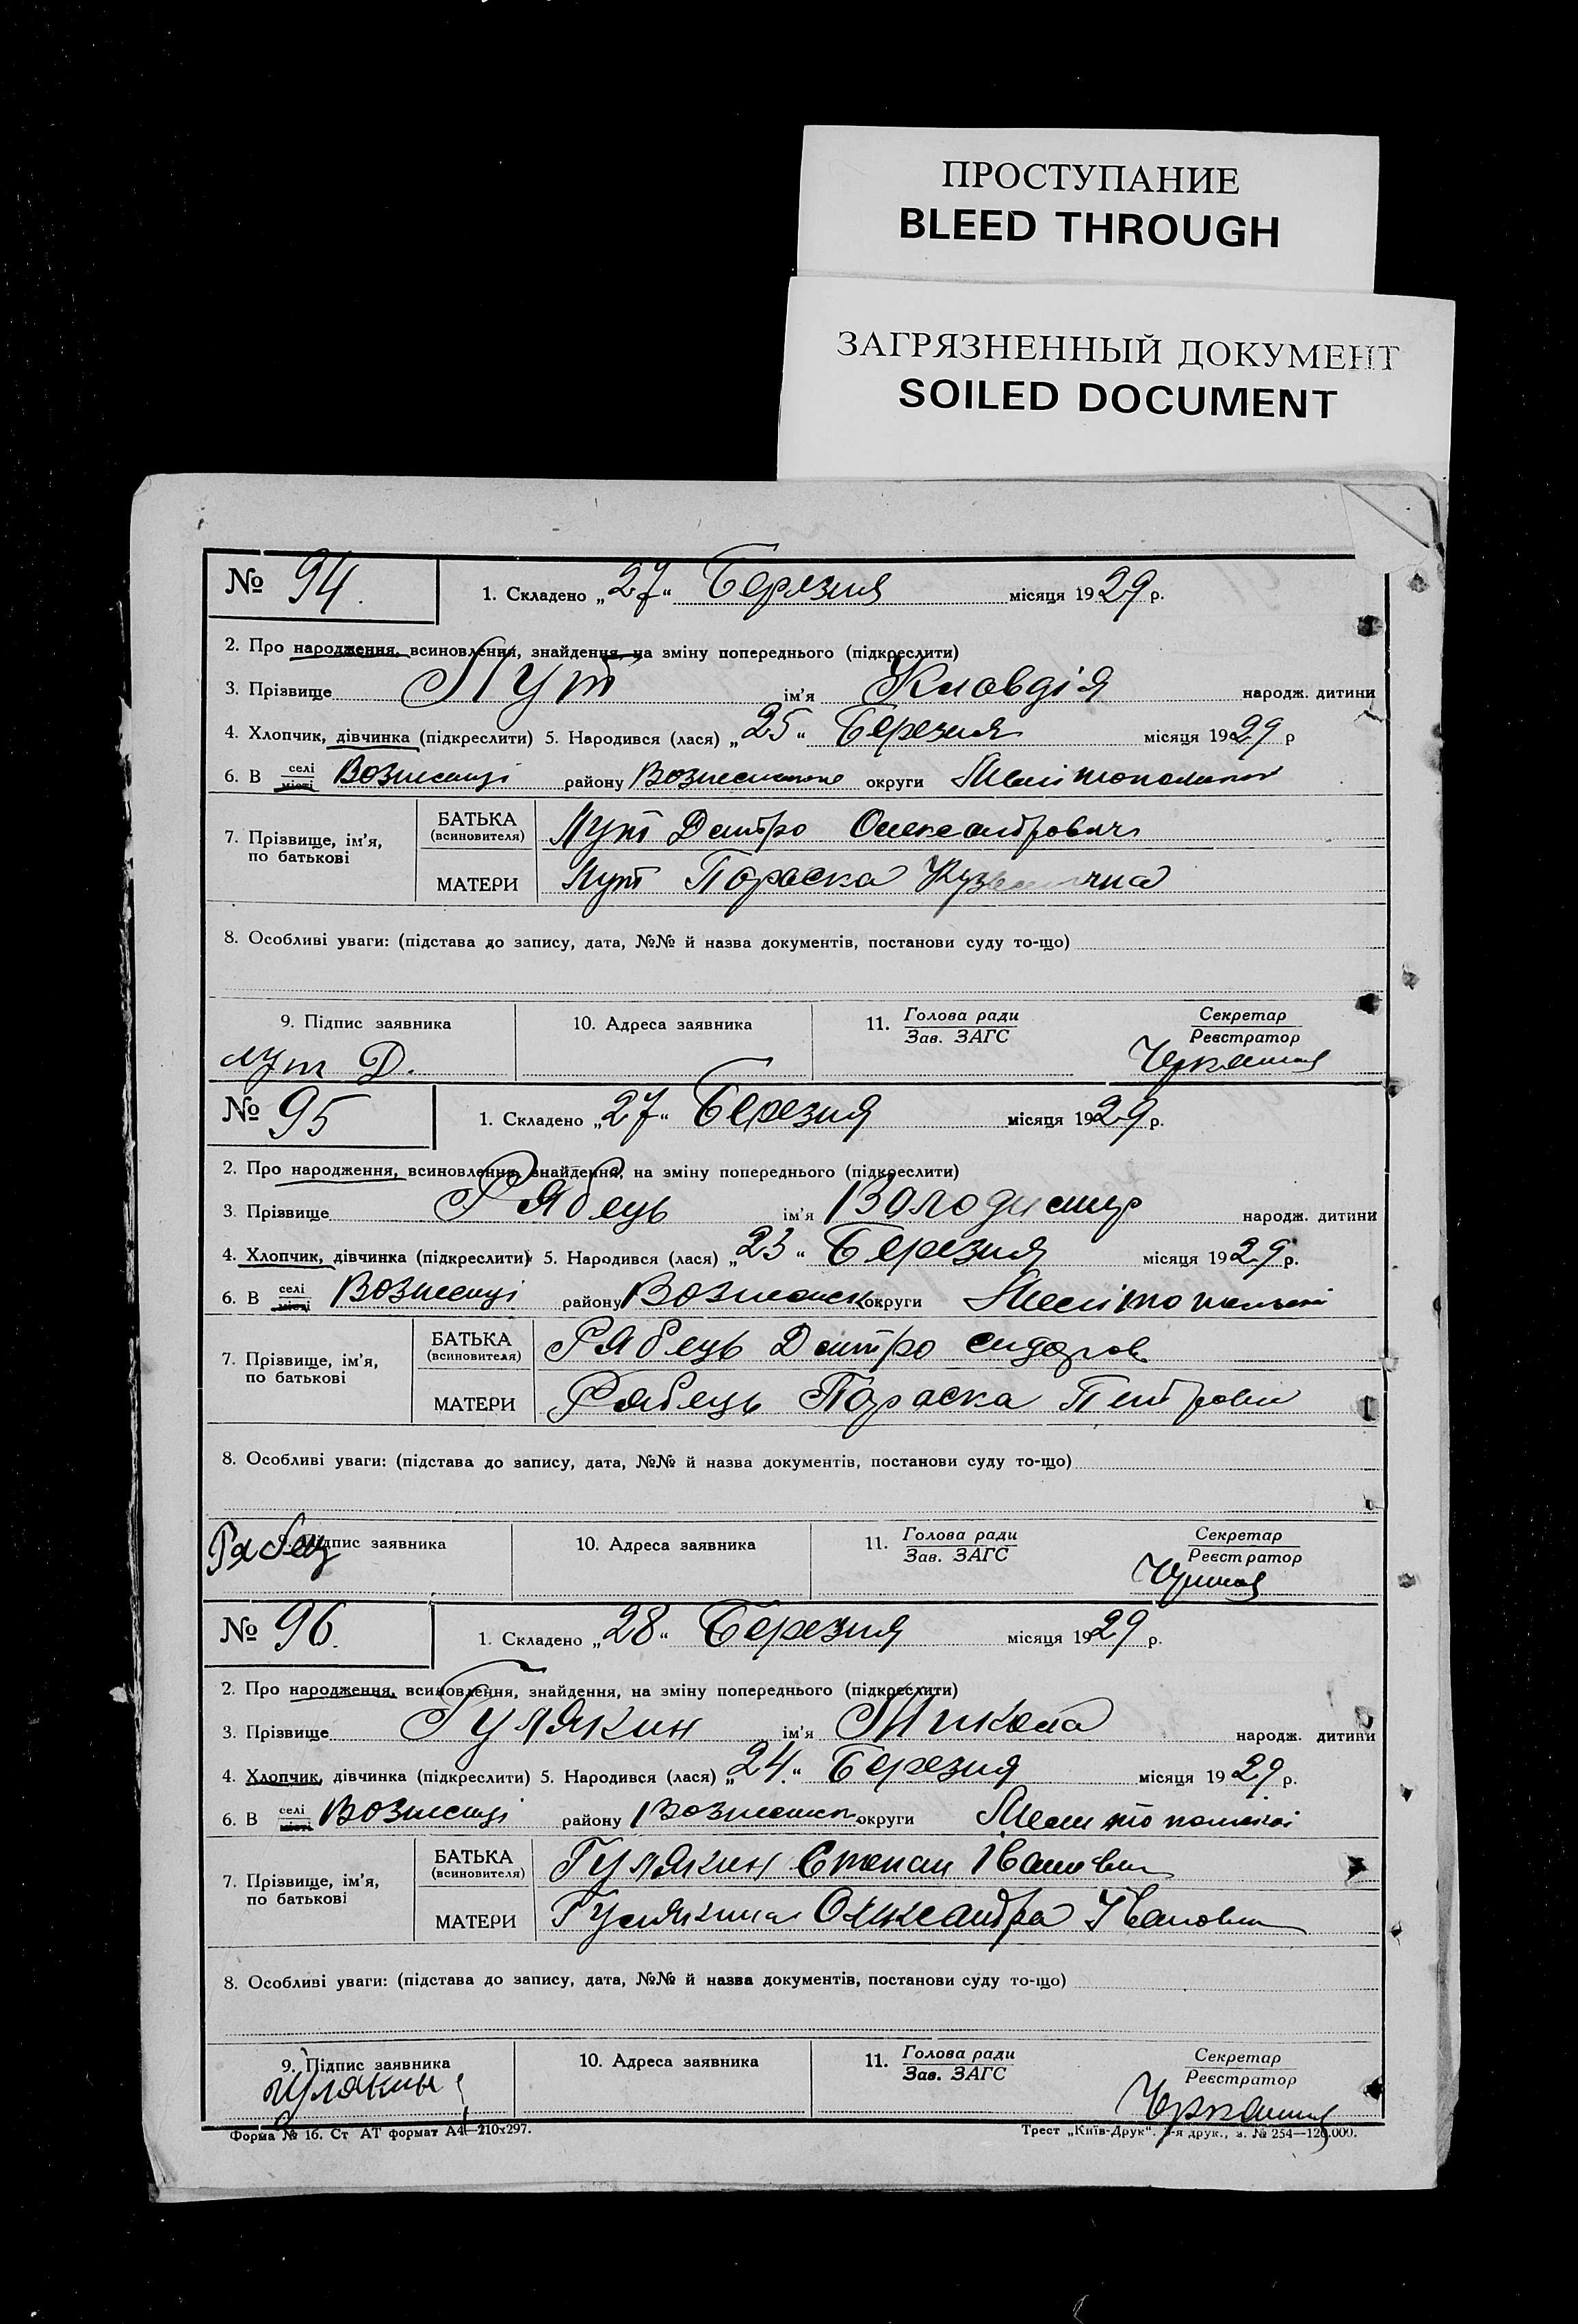 ПРОСТУПАНИЕ
BLEED THROUGH
ЗАГРЯЗНЕННЫЙ ДОКУМЕНТ
SOILED DOCUMENT
№ 94. 1. Складено „27“ Березня місяця 1929 р.
2. Про народження, всиновлення, знайдення, на зміну попереднього (підкреслити)
3. Прізвище Лут ім'я Клавдія народж. дитини
4. Хлопчик, дівчинка (підкреслити) 5. Народився (лася) „25“ Березня місяця 1929 р
6. В селі місті Вознесенці району округи
7. Прізвище, ім'я, по батькові
БАТЬКА (всиновителя) Лут Дмитро Олександрович
МАТЕРИ Лут Параска
8. Особливі уваги: (підстава до запису, дата, №№ й назва документів, постанови суду то-що)
9. Підпис заявника 10. Адреса заявника 11. Голова ради Зав. ЗАГС Секретар Реєстратор
Лут Д.
№ 95 1. Складено „27“ Березня місяця 1929 р.
2. Про народження, всиновлення, знайдення, на зміну попереднього (підкреслити)
3. Прізвище Рябець ім'я Володимир народж. дитини
4. Хлопчик, дівчинка (підкреслити) 5. Народився (лася) „23“ Березня місяця 1929 р.
6. В селі місті Вознесенці району округи
7. Прізвище, ім'я, по батькові
БАТЬКА (всиновителя) Рябець Дмитро Сидоров
МАТЕРИ Рябець Параска
8. Особливі уваги: (підстава до запису, дата, №№ й назва документів, постанови суду то-що)
9. Підпис заявника 10. Адреса заявника 11. Голова ради Зав. ЗАГС Секретар Реєстратор
№ 96. 1. Складено „28“ Березня місяця 1929 р.
2. Про народження, всиновлення, знайдення, на зміну попереднього (підкреслити)
3. Прізвище Гулякин ім'я Микола народж. дитини
4. Хлопчик, дівчинка (підкреслити) 5. Народився (лася) „24.“ Березня місяця 1929 р.
6. В селі місті Вознесенці району округи
7. Прізвище, ім'я, по батькові
БАТЬКА (всиновителя) Гулякин Степан Іванович
МАТЕРИ Гулякина Олександра
8. Особливі уваги: (підстава до запису, дата, №№ й назва документів, постанови суду то-що)
9. Підпис заявника 10. Адреса заявника 11. Голова ради Зав. ЗАГС Секретар Реєстратор
Форма № 16. Ст АТ формат А4—210x297. Трест „Київ-Друк“. друк., з. № 254—120.000.